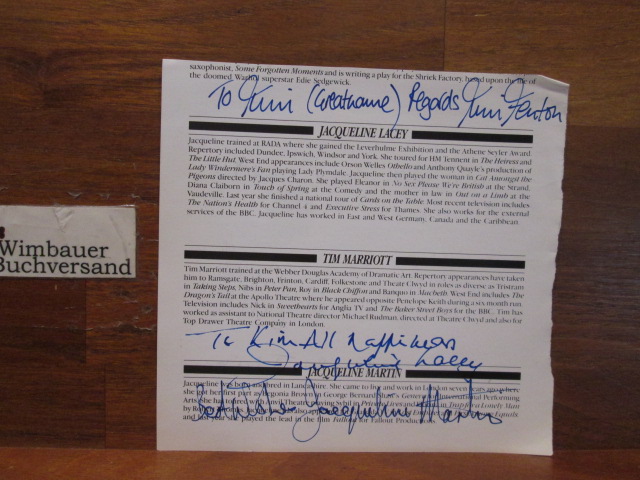 saxophonist, Some Forgotten Moments and is writing a play for the Shriek Factory, based upon the life of
the doomed Warhol superstar Edie Sedgewick.
To Kim (Great name) Regards Kim Fenton
JACQUELINE LACEY
Jacqueline trained at RADA where she gained the Leverhulme Exhibition and the Athene Seyler Award.
Repertory included Dundee, Ipswich, Windsor and York. She toured for HM Tennent in The Heiress and
The Little Hut. West End appearances include Orson Welles Othello and Anthony Quayle's production of
Lady Windermere's Fan playing Lady Plymdale. Jacqueline then played the woman in Cat Amongst the
Pigeons directed by Jacques Charon. She played Eleanor in No Sex Please We're British at the Strand,
Diana Claiborn in Touch of Spring at the Comedy and the mother in law in Out on a Limb at the
Vaudeville. Last year she finished a national tour of Cards on the Table. Most recent television includes
The Nation's Health for Channel 4 and Executive Stress for Thames. She also works for the external
services of the BBC. Jacqueline has worked in East and West Germany, Canada and the Caribbean.
Wimbauer
Buchversand
TIM MARRIOTT
Tim Marriott trained at the Webber Douglas Academy of Dramatic Art. Repertory appearances have taken
him to Ramsgate, Brighton, Frinton, Cardiff, Folkestone and Theatr Clwyd in roles as diverse as Tristram
in Taking Steps, Nibs in Peter Pan, Roy in Black Chiffon and Banquo in Macbeth. West End includes The
Dragon's Tail at the Apollo Theatre where he appeared opposite Penelope Keith during a six month run.
Television includes Nick in Sweethearts for Anglia TV and The Baker Street Boys for the BBC. Tim has
worked as assistant to National Theatre director Michael Rudman, directed at Theatr Clwyd and also for
Top Drawer Theatre Company in London.
To Kim All Happiness
Jacqueline Lacey
JACQUELINE MARTIN
Jacqueline was born and bred in Lancashire. She came to live and work in London seven years ago where
she
her first
Best Wishes Jacqueline Martin
and last year she played the lead in the film Fallout for Fallout Productions.